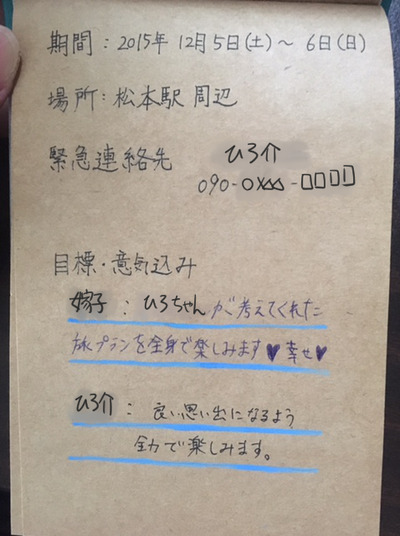 期間：2015年 12月5日(土)～ 6日(日)
場所：松本駅 周辺
緊急連絡先
ひろ介
090-○×△△-□□□□
目標・意気込み
嫁子：ひろちゃんが考えてくれた
旅プランを全身で楽しみます♥幸せ♥
ひろ介：良い思い出になるよう
全力で楽しみます。